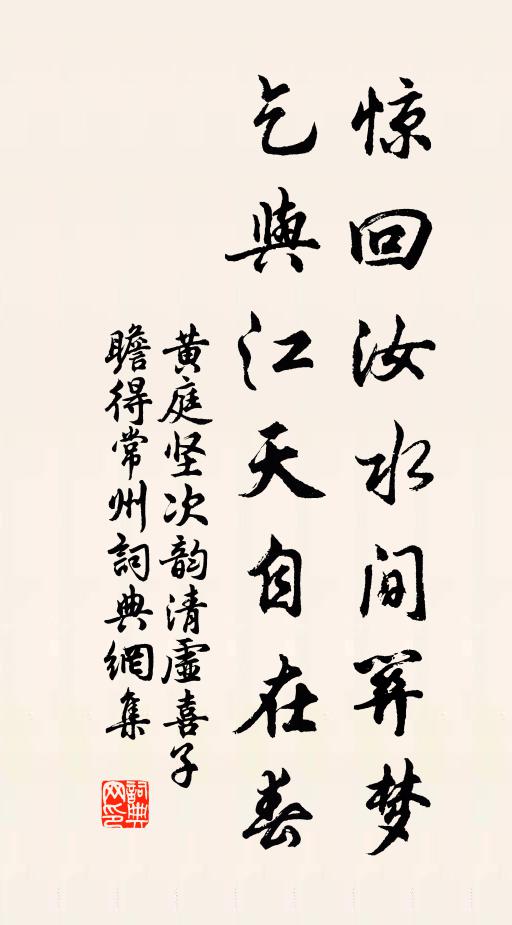 惊回汝水间关梦
乞與江天自在春
黄庭坚次韵清虛喜子
瞻得常州詞典網集
詞典网印